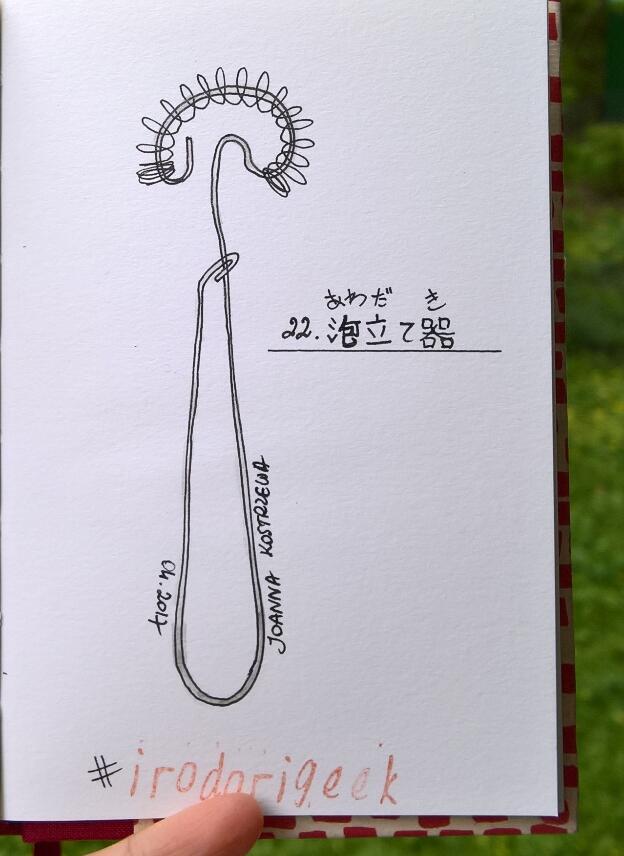 あわだ き
22. 泡立て器
JOANNA KOSTRZEWA
04.2017
#irodorigeek